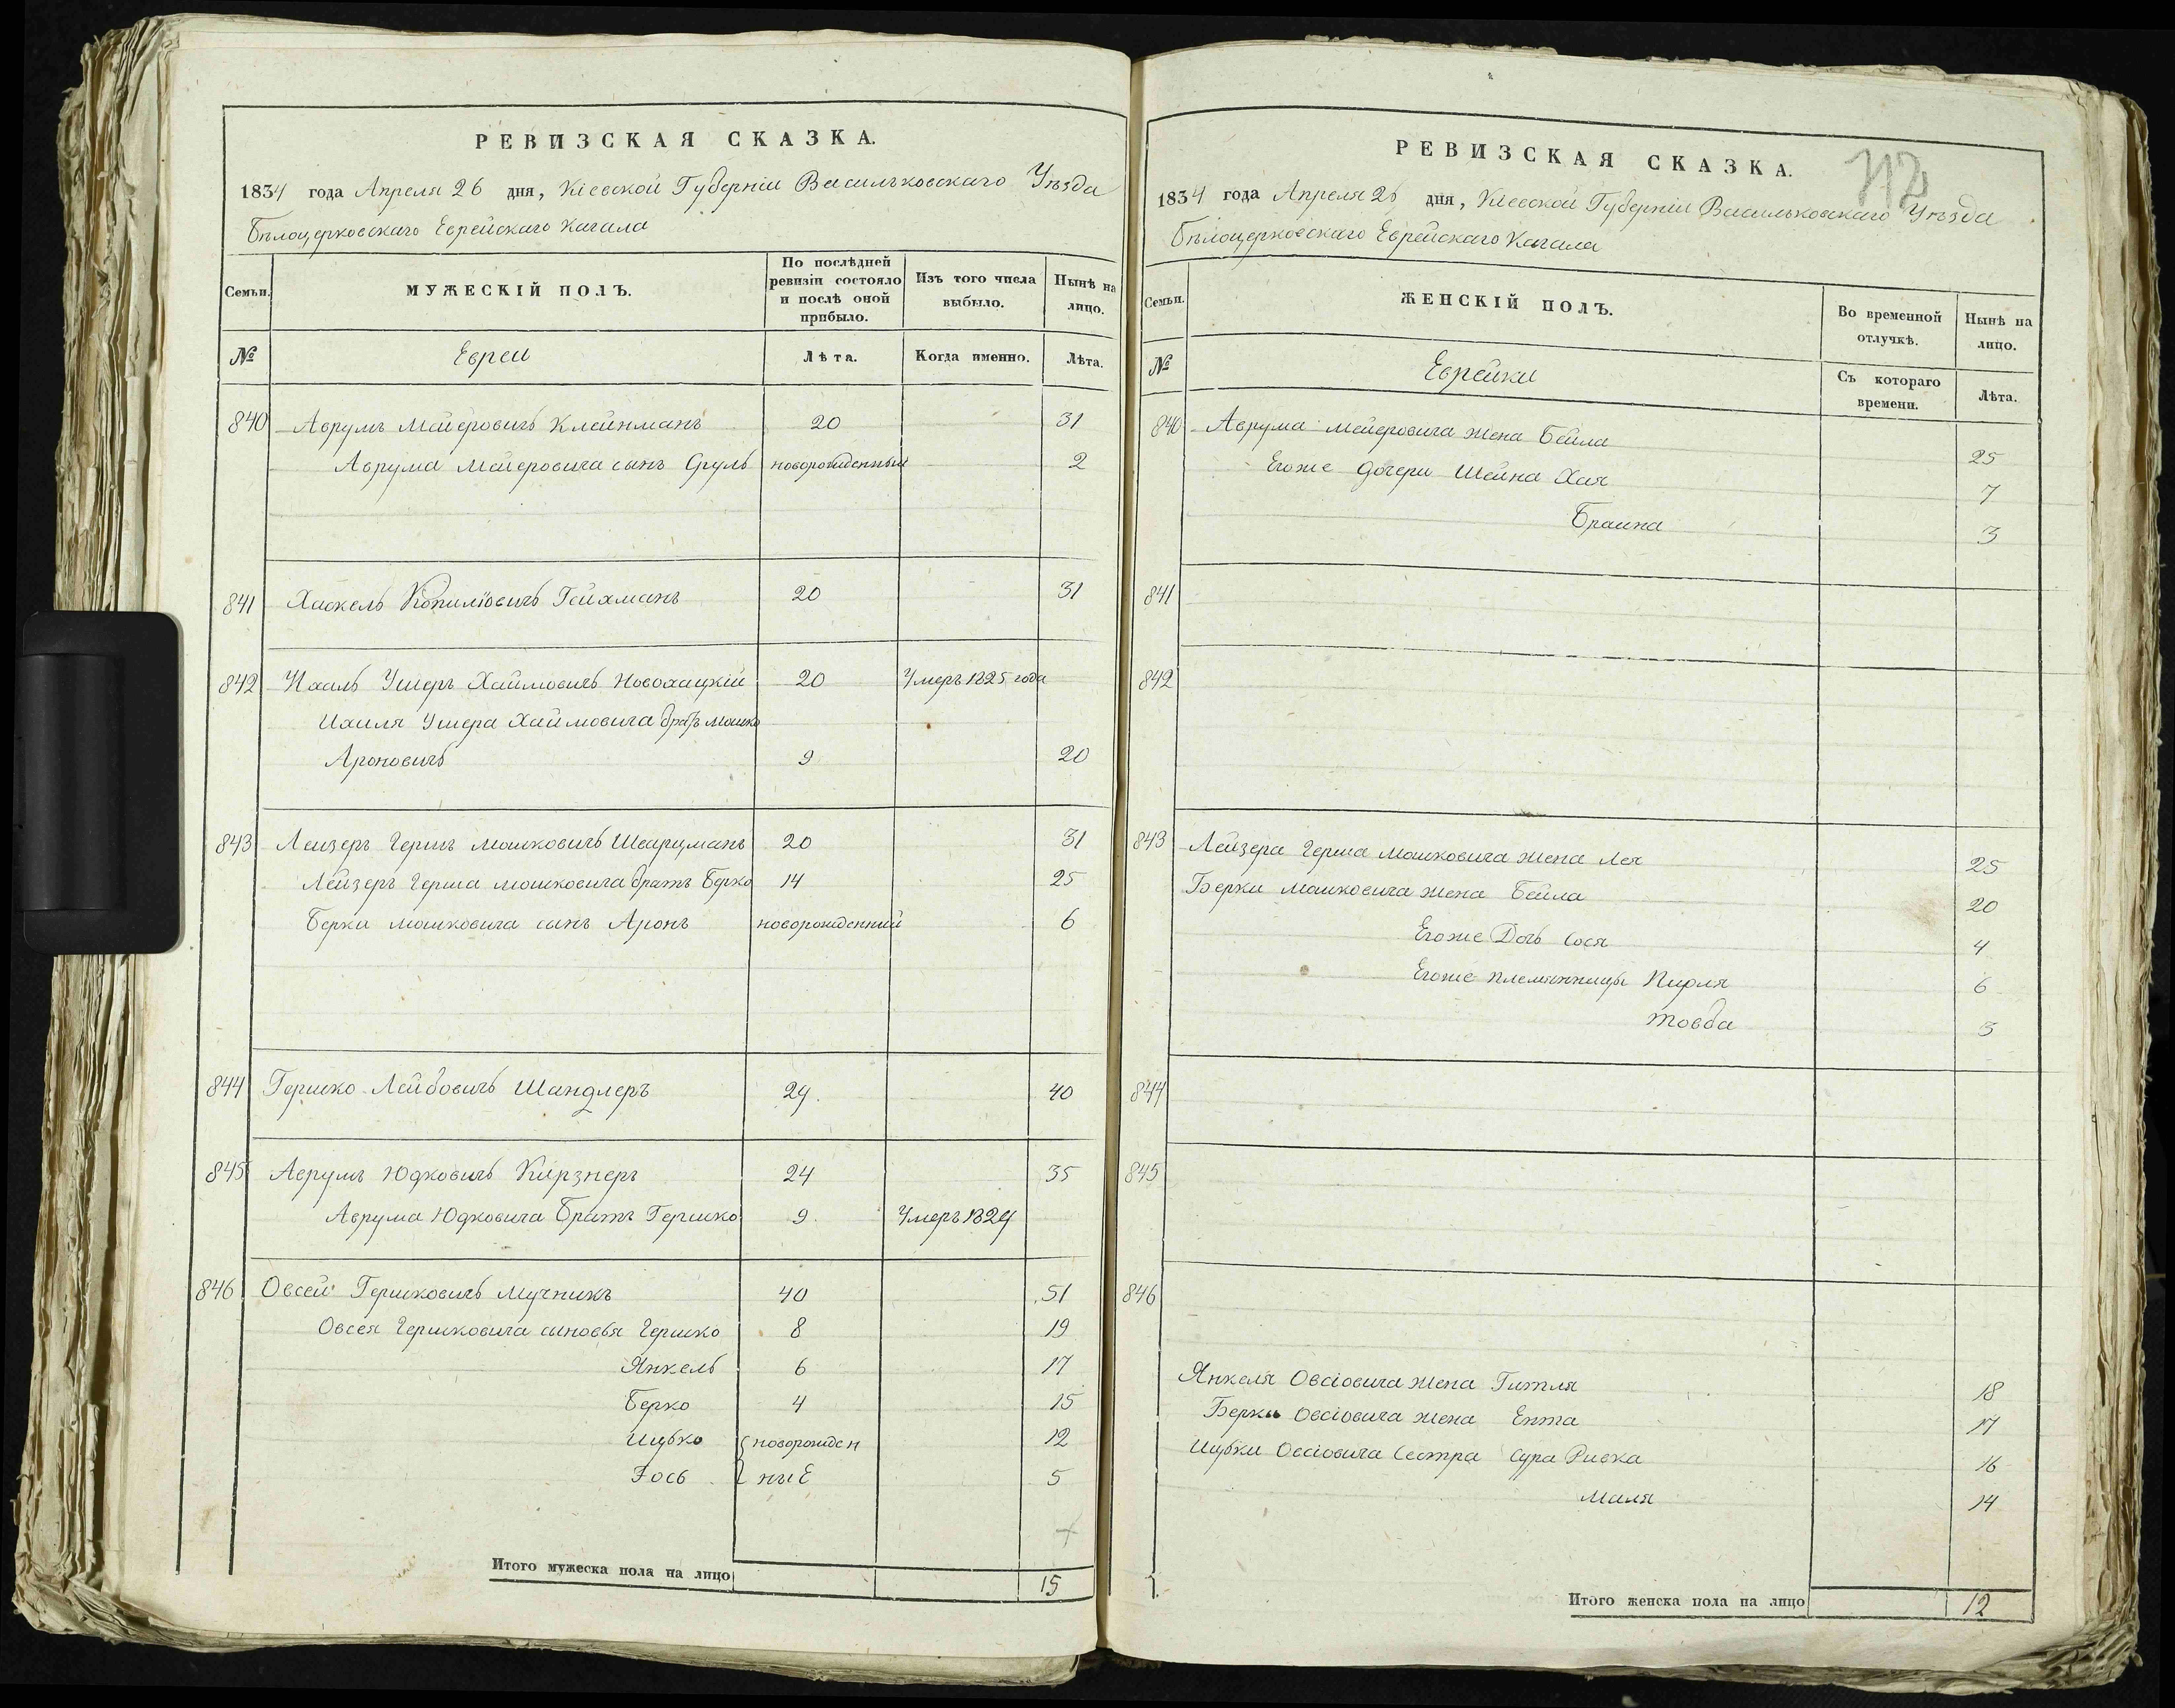 РЕВИЗСКАЯ СКАЗКА.
1834 года Апреля 26 дня, Кіевской Губерніи Васильковскаго Уѣзда
Бѣлоцерковскаго Еврейскаго Кагала
Семьи. МУЖЕСКІЙ ПОЛЪ. По послѣдней ревизіи состояло и послѣ оной прибыло. Изъ того числа выбыло. Нынѣ на лицо.
№ Евреи Лѣта. Когда именно. Лѣта.
840 Аврумъ Мейеровичъ Клейнманъ 20 31
Аврума Мейеровича сынъ Сруль новорожденный 2
841 Хаскель Копиліовичъ Гейхманъ 20 31
842 Ихиль Ушеръ Хаймовичъ Новохацкій 20 Умеръ 1825 года
Ихиля Ушера Хаймовича братъ Мошко
Ароновичъ 9 20
843 Лейзеръ Гершъ Мошковичъ Шварцманъ 20 31
Лейзеръ Герша Мошковича братъ Берко 14 25
Берки Мошковича сынъ Аронъ новорожденный 6
844 Гершко Лейбовичъ Шандлеръ 29. 40
845 Аврумъ Юдковичъ Кирзнеръ 24 35
Аврума Юдковича Братъ Гершко 9. Умеръ 1829
846 Овсей Гершковичъ Мучникъ 40 51
Овсея Гершковича сыновья Гершко 8 19
Янкель 6 17
Берко 4 15
Ицко новорожден 12
Іось ные 5
Итого мужеска пола на лицо 15
РЕВИЗСКАЯ СКАЗКА.
1834 года Апреля 26 дня, Кіевской Губерніи Васильковскаго Уѣзда
Бѣлоцерковскаго Еврейскаго Кагала
Семьи. ЖЕНСКІЙ ПОЛЪ. Во временной отлучкѣ. Нынѣ на лицо.
№ Еврейки Съ котораго времени. Лѣта.
840 Аврума Мейеровича жена Бейла 25
Егоже дочери Шейна Хая 7
Браина 3
841
842
843 Лейзера Герша Мошковича жена Лея 25
Берки Мошковича жена Бейла 20
Егоже Дочь Сося 4
Егоже племянницы Пирля 6
Товба 3
844
845
846
Янкеля Овсіовича жена Гитля 18
Берки Овсіовича жена Ента 17
Ицки Овсіовича Сестра Сура Ривка 16
Маля 14
Итого женска пола на лицо 12